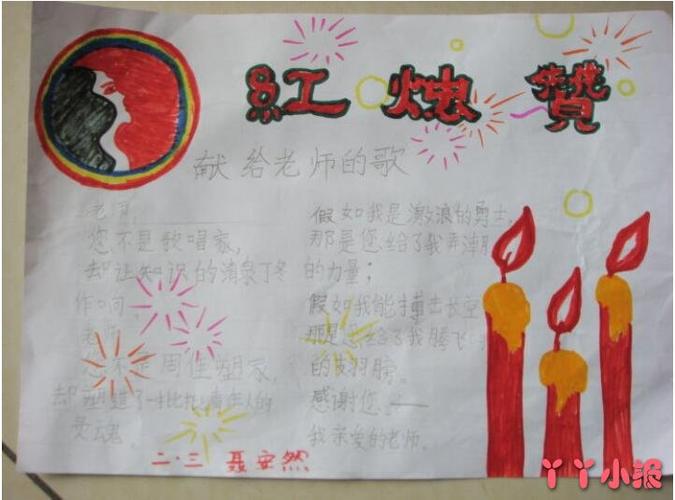 紅烛贊
献给老师的歌
老师,
您不是歌唱家,
却让知识的清泉丁冬
作响,
老师
您不是 塑家,
却塑造了一批批青年人的
灵魂
假如我是激浪的勇士,
那是您给了我弄潮
的力量;
假如我能搏击长空
那是您给了我腾飞
的 羽膀。
感谢您、——
我亲爱的老师。
二·三 聂安然
丫丫小报